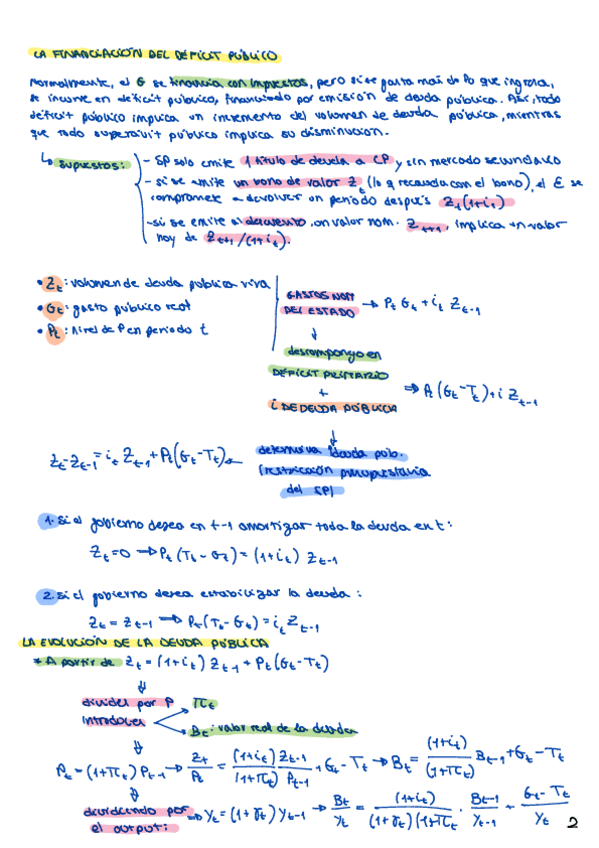 LA FINANCIACIÓN DEL DÉFICIT PÚBLICO
Normalmente, el G se financia con impuestos, pero si se gasta más de lo que ingresa,
se incurre en déficit público, financiado por emisión de deuda pública. Así, todo
déficit público implica un incremento del volumen de deuda pública, mientras
que todo superávit público implica su disminución.
↳ Supuestos:
- SP solo emite 1 título de deuda a CP y sin mercado secundario
- si se emite un bono de valor Zt (lo q recauda con el bono), el E se
compromete a devolver un periodo después Zt(1+it)
- si se emite al descuento, on valor nom. Zt+1, implica un valor
hoy de Zt+1/(1+it).
• Zt: volumen de deuda pública viva
• Gt: gasto público real
• Pt: nivel de P en periodo t
GASTOS NOM DEL ESTADO → Pt Gt + it Zt-1
↓
descompongo en
DÉFICIT PRIMARIO
+
i DE DEUDA PÚBLICA
⇒ Pt(Gt-Tt)+i Zt-1
↓
Zt-Zt-1 = it Zt-1 + Pt(Gt-Tt) ←
determina deuda púb.
(restricción presupuestaria
del SP)
1. Si el gobierno desea en t-1 amortizar toda la deuda en t:
Zt=0 → Pt(Tt-Gt) = (1+it) Zt-1
2. Si el gobierno desea estabilizar la deuda:
Zt = Zt-1 → Pt(Tt-Gt) = it Zt-1
LA EVOLUCIÓN DE LA DEUDA PÚBLICA
* A partir de Zt = (1+it) Zt-1 + Pt(Gt-Tt)
⇓
dividir por P
introducir
πt
Bt: valor real de la deuda
⇓
Pt = (1+πt) Pt-1 → Zt/Pt = (1+it)/(1+πt) Zt-1/Pt-1 + Gt-Tt → Bt = (1+it)/(1+πt) Bt-1 + Gt-Tt
⇓
dividiendo por
el output:
⇒ Yt = (1+γt) Yt-1 → Bt/Yt = (1+it)/(1+γt)(1+πt) · Bt-1/Yt-1 + Gt-Tt/Yt
2